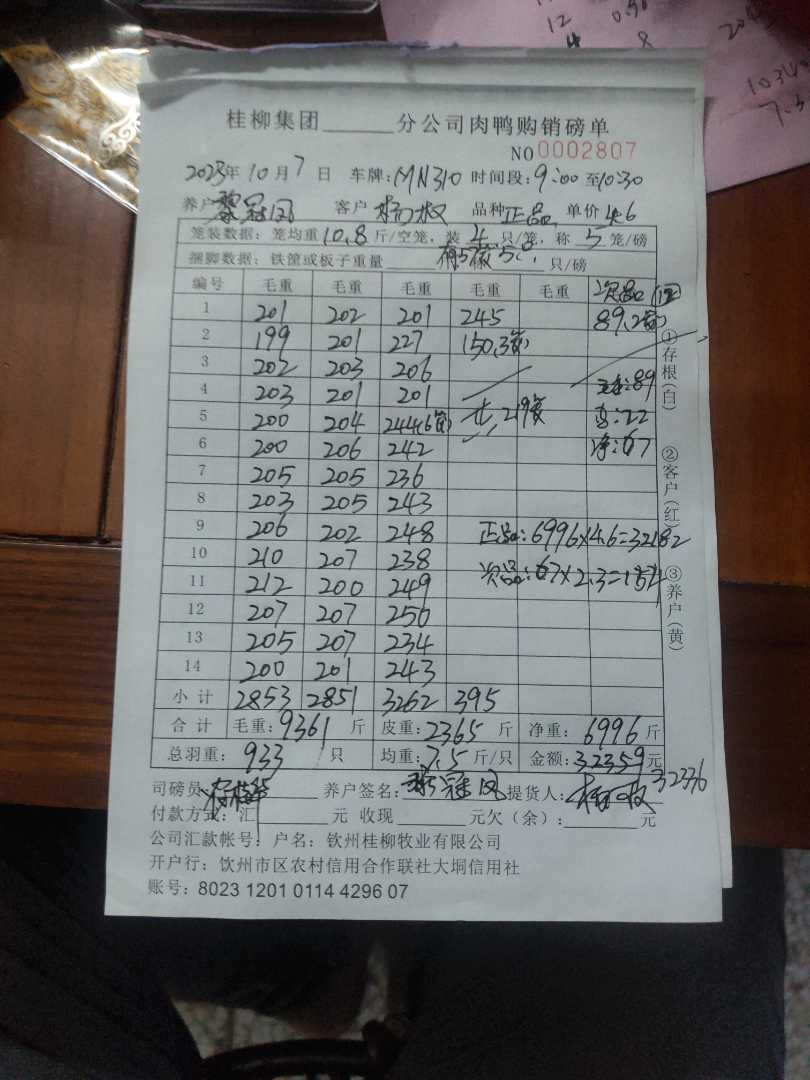 12 0.90
4 8
10340
7.5
桂柳集团______分公司肉鸭购销磅单
NO 0002807
2023年10月7日 车牌:MN310 时间段:9:00至10:30
养户 黎冠凤 客户 杨 品种 正品 单价 4.6
笼装数据:笼均重10.8斤/空笼,装4只/笼,称5笼/磅
捆脚数据:铁筐或板子重量______只/磅
编号 毛重 毛重 毛重 毛重 毛重 次品
1 201 202 201 245 89.2
2 199 201 227 150.3
3 202 203 206
4 203 201 201 :89
5 200 204 244 219 :22
6 200 206 242 净:67
7 205 205 236
8 203 205 243
9 206 202 248 正品:6996×4.6=32182
10 210 207 238 次品:67×2.3=154
11 212 200 249
12 207 207 250
13 205 207 234
14 200 201 243
小计 2853 2851 3262 395
合计 毛重:9361斤 皮重:2365斤 净重:6996斤
总羽重:933只 均重:7.5斤/只 金额:32359元
32336
司磅员: 养户签名:黎冠凤 提货人:
付款方式:汇______元 收现______元欠(余):______元
公司汇款帐号:户名:钦州桂柳牧业有限公司
开户行:钦州市区农村信用合作联社大垌信用社
账号:8023 1201 0114 4296 07
①存根(白) ②客户(红) ③养户(黄)